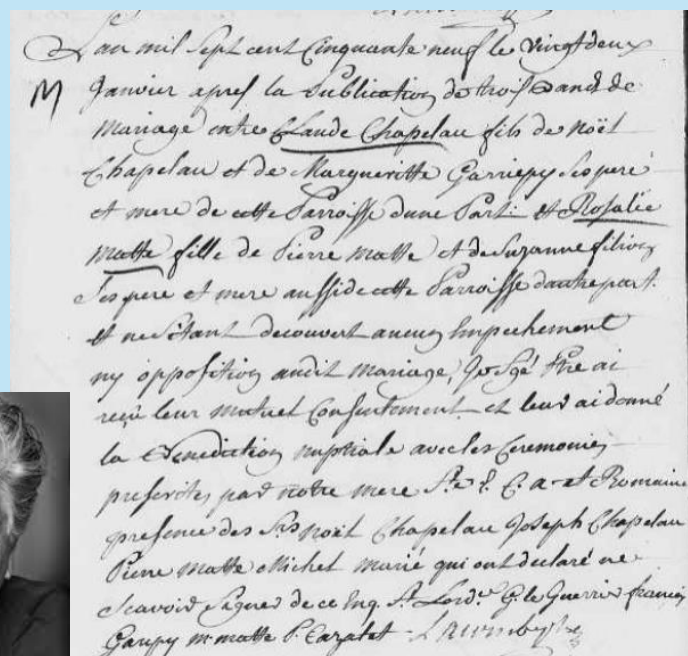 L'an mil Sept cent Cinquante neuf le vingt deux
M
Janvier apres la Publication de trois Bans de
Mariage entre Claude Chapelau fils de Noël
Chapelau et de Margueritte Garriepy Ses pere
et mere de cette Parroisse dune Part: et Rosalie
matte fille de Pierre matte et de Suzanne filion
Ses pere et mere aussi de cette Parroisse dautre part.
et ne Sétant decouvert aucun Empechement
ny opposition audit mariage, Je Sgé Ptre ai
reçu leur mutuel Consentement et leur ai donné
la Benediction nuptiale avec les Ceremonies
prescrites par notre mere Ste E. C. a. et Romaine
presence des Srs Noël Chapelau Joseph Chapelau
Pierre matte Michel marié qui ont declaré ne
Scavoir Signer de ce Enq. St. G. le Guerrier françois
Garipy m. matte P.